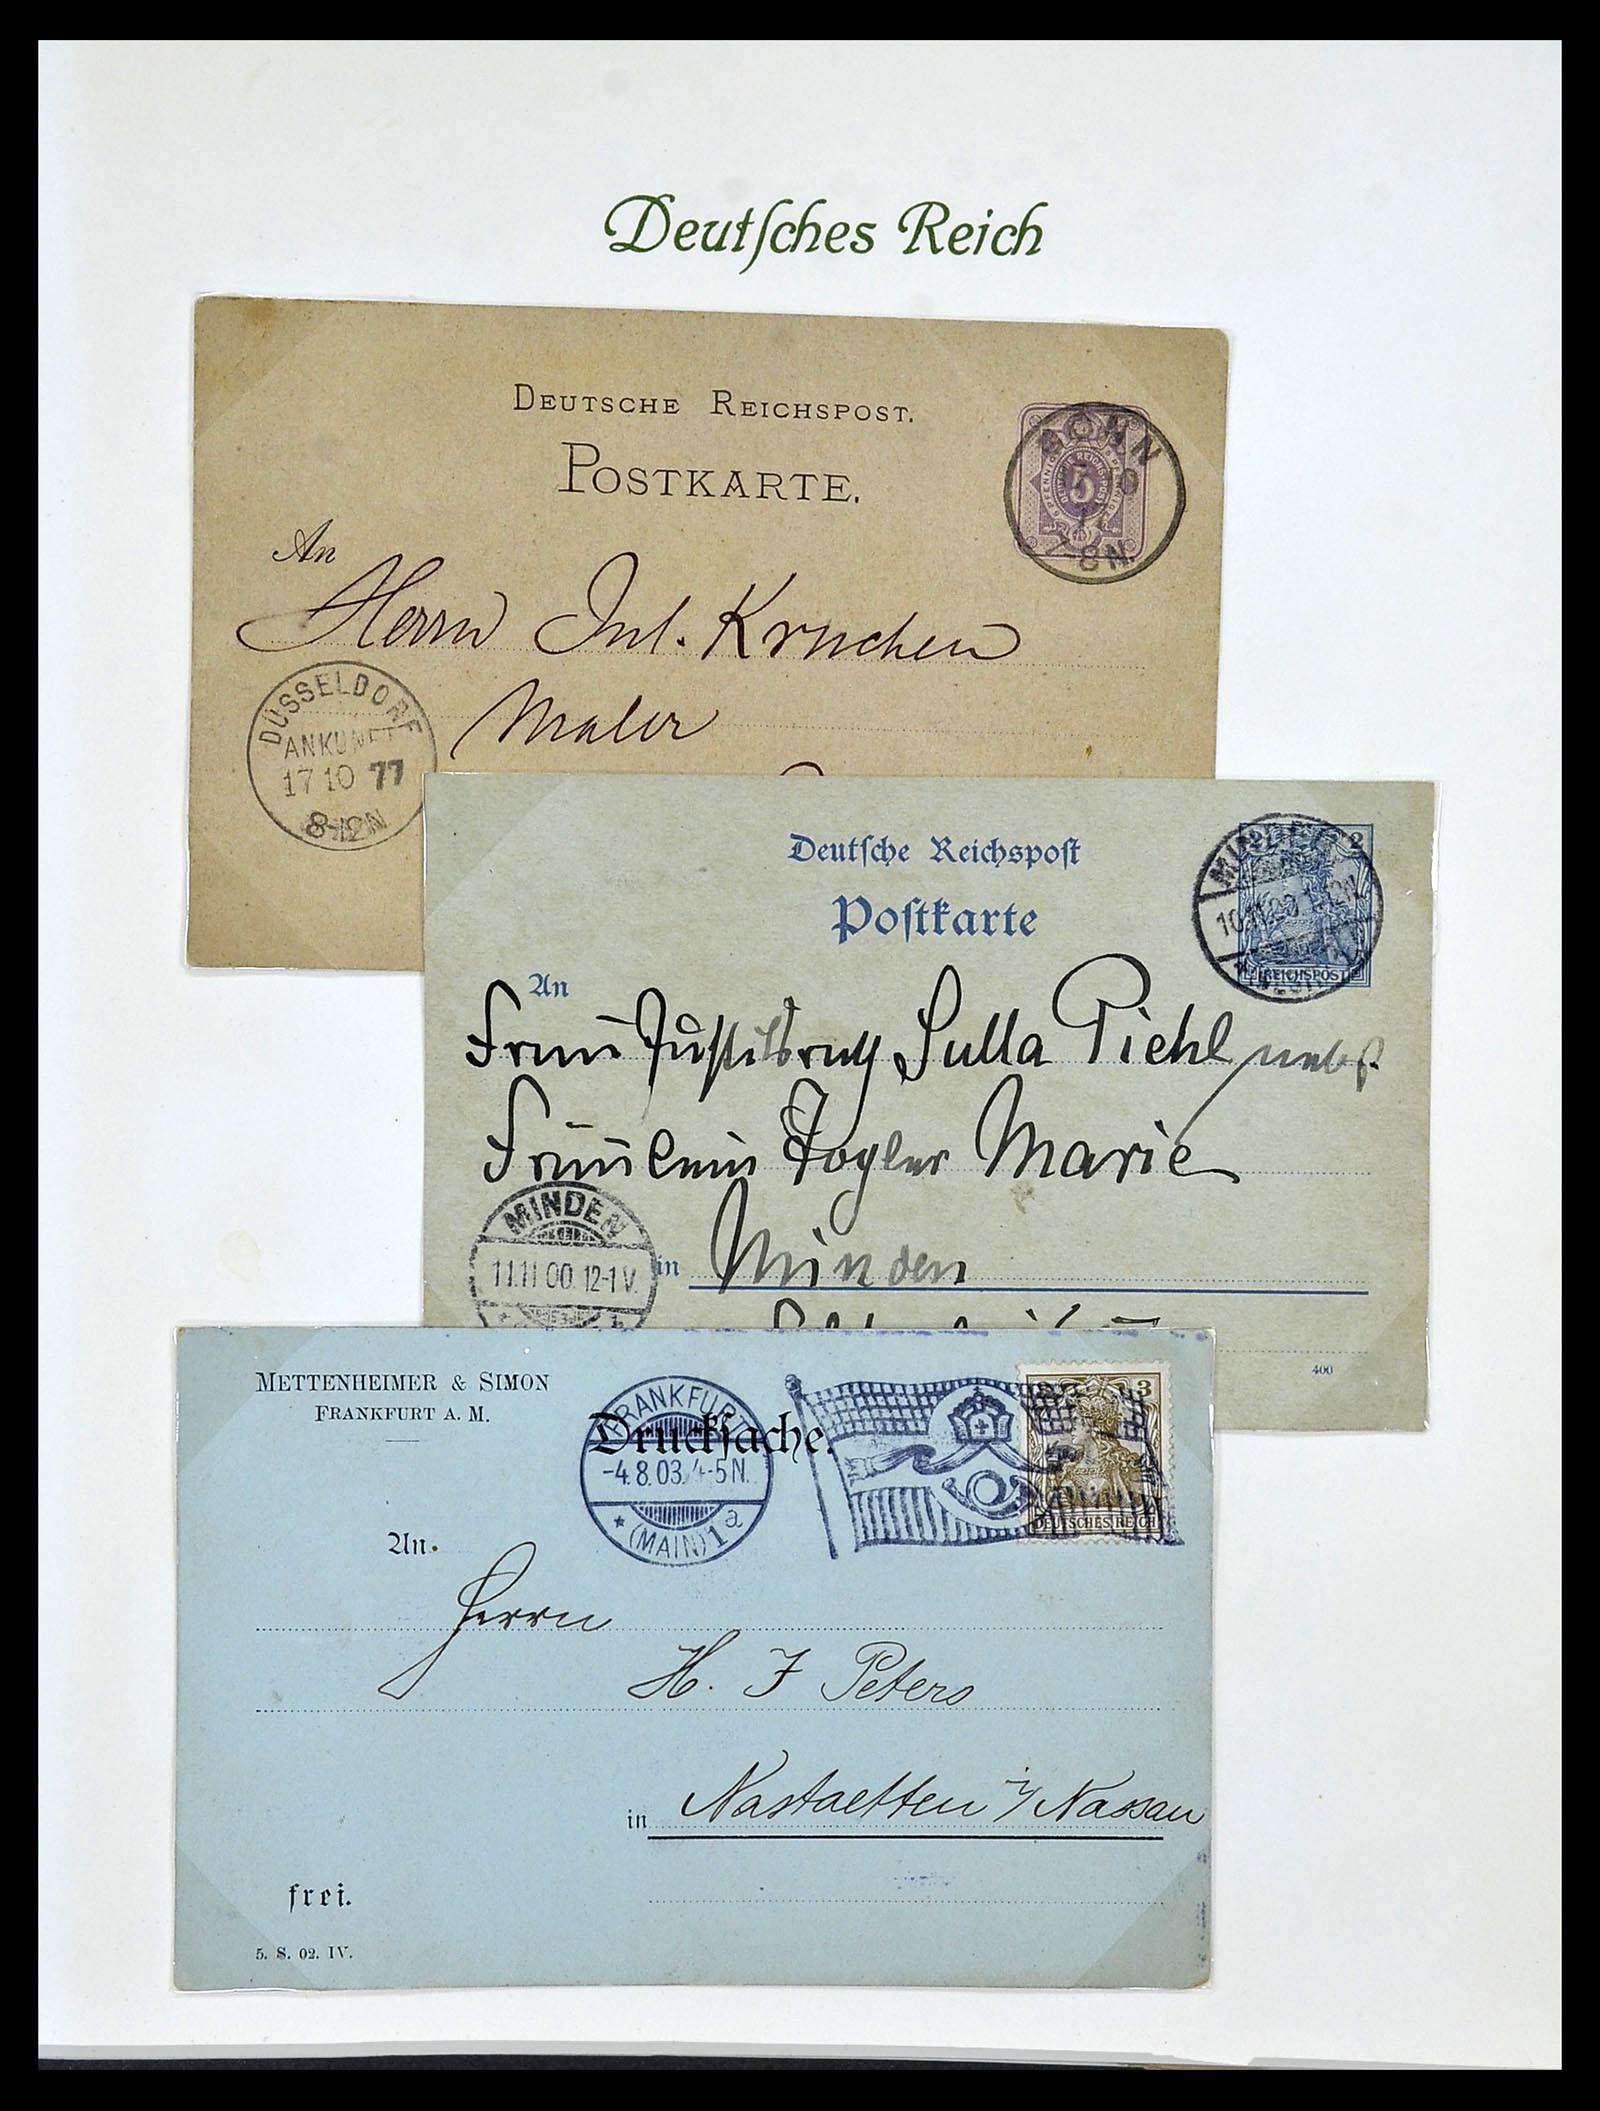 Deutſches Reich
DEUTSCHE REICHSPOST.
POSTKARTE.
BONN
7-8N.
5
An
Herrn Jul. Kruchen
Maler
DÜSSELDORF
ANKUNFT
17 10 77
Deutſche Reichspoſt
Poſtkarte
2
REICHSPOST
An
Frau Juſtizrath Sulla Piehl nebſt
Fräulein Marie
in Minden
MINDEN
11.11.00.12-1V.
400
METTENHEIMER & SIMON
FRANKFURT A. M.
Druckſache.
FRANKFURT
-4.8.03.4-5N.
* (MAIN) 1 a
3
DEUTSCHES REICH
An
Herrn
H. J Peters
in Nastaetten i/ Nassau
frei.
5. S. 02. IV.